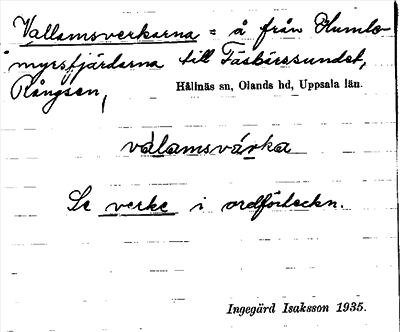 Vallamsverkarna = å från Humlö-
myrsfjärdarna till Fäsbärssundet,
Rångsen, Hållnäs sn, Olands hd, Uppsala län.
valamsvárka
Se verke i ordförteckn.
Ingegärd Isaksson 1935.